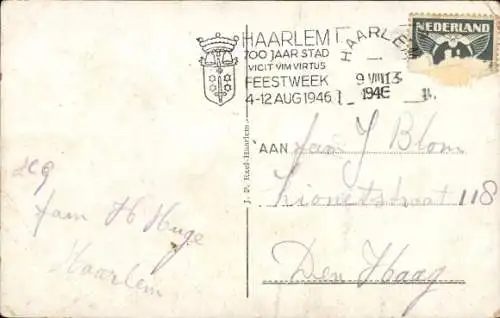 HAARLEM
700 JAAR STAD
VICIT VIM VIRTUS
FEESTWEEK
4-12 AUG 1946
HAARLEM
9 VIII 13
1946
NEDERLAND
AAN Fam J Blom
Lionetstraat 118
Den Haag
Fam H Huge
Haarlem